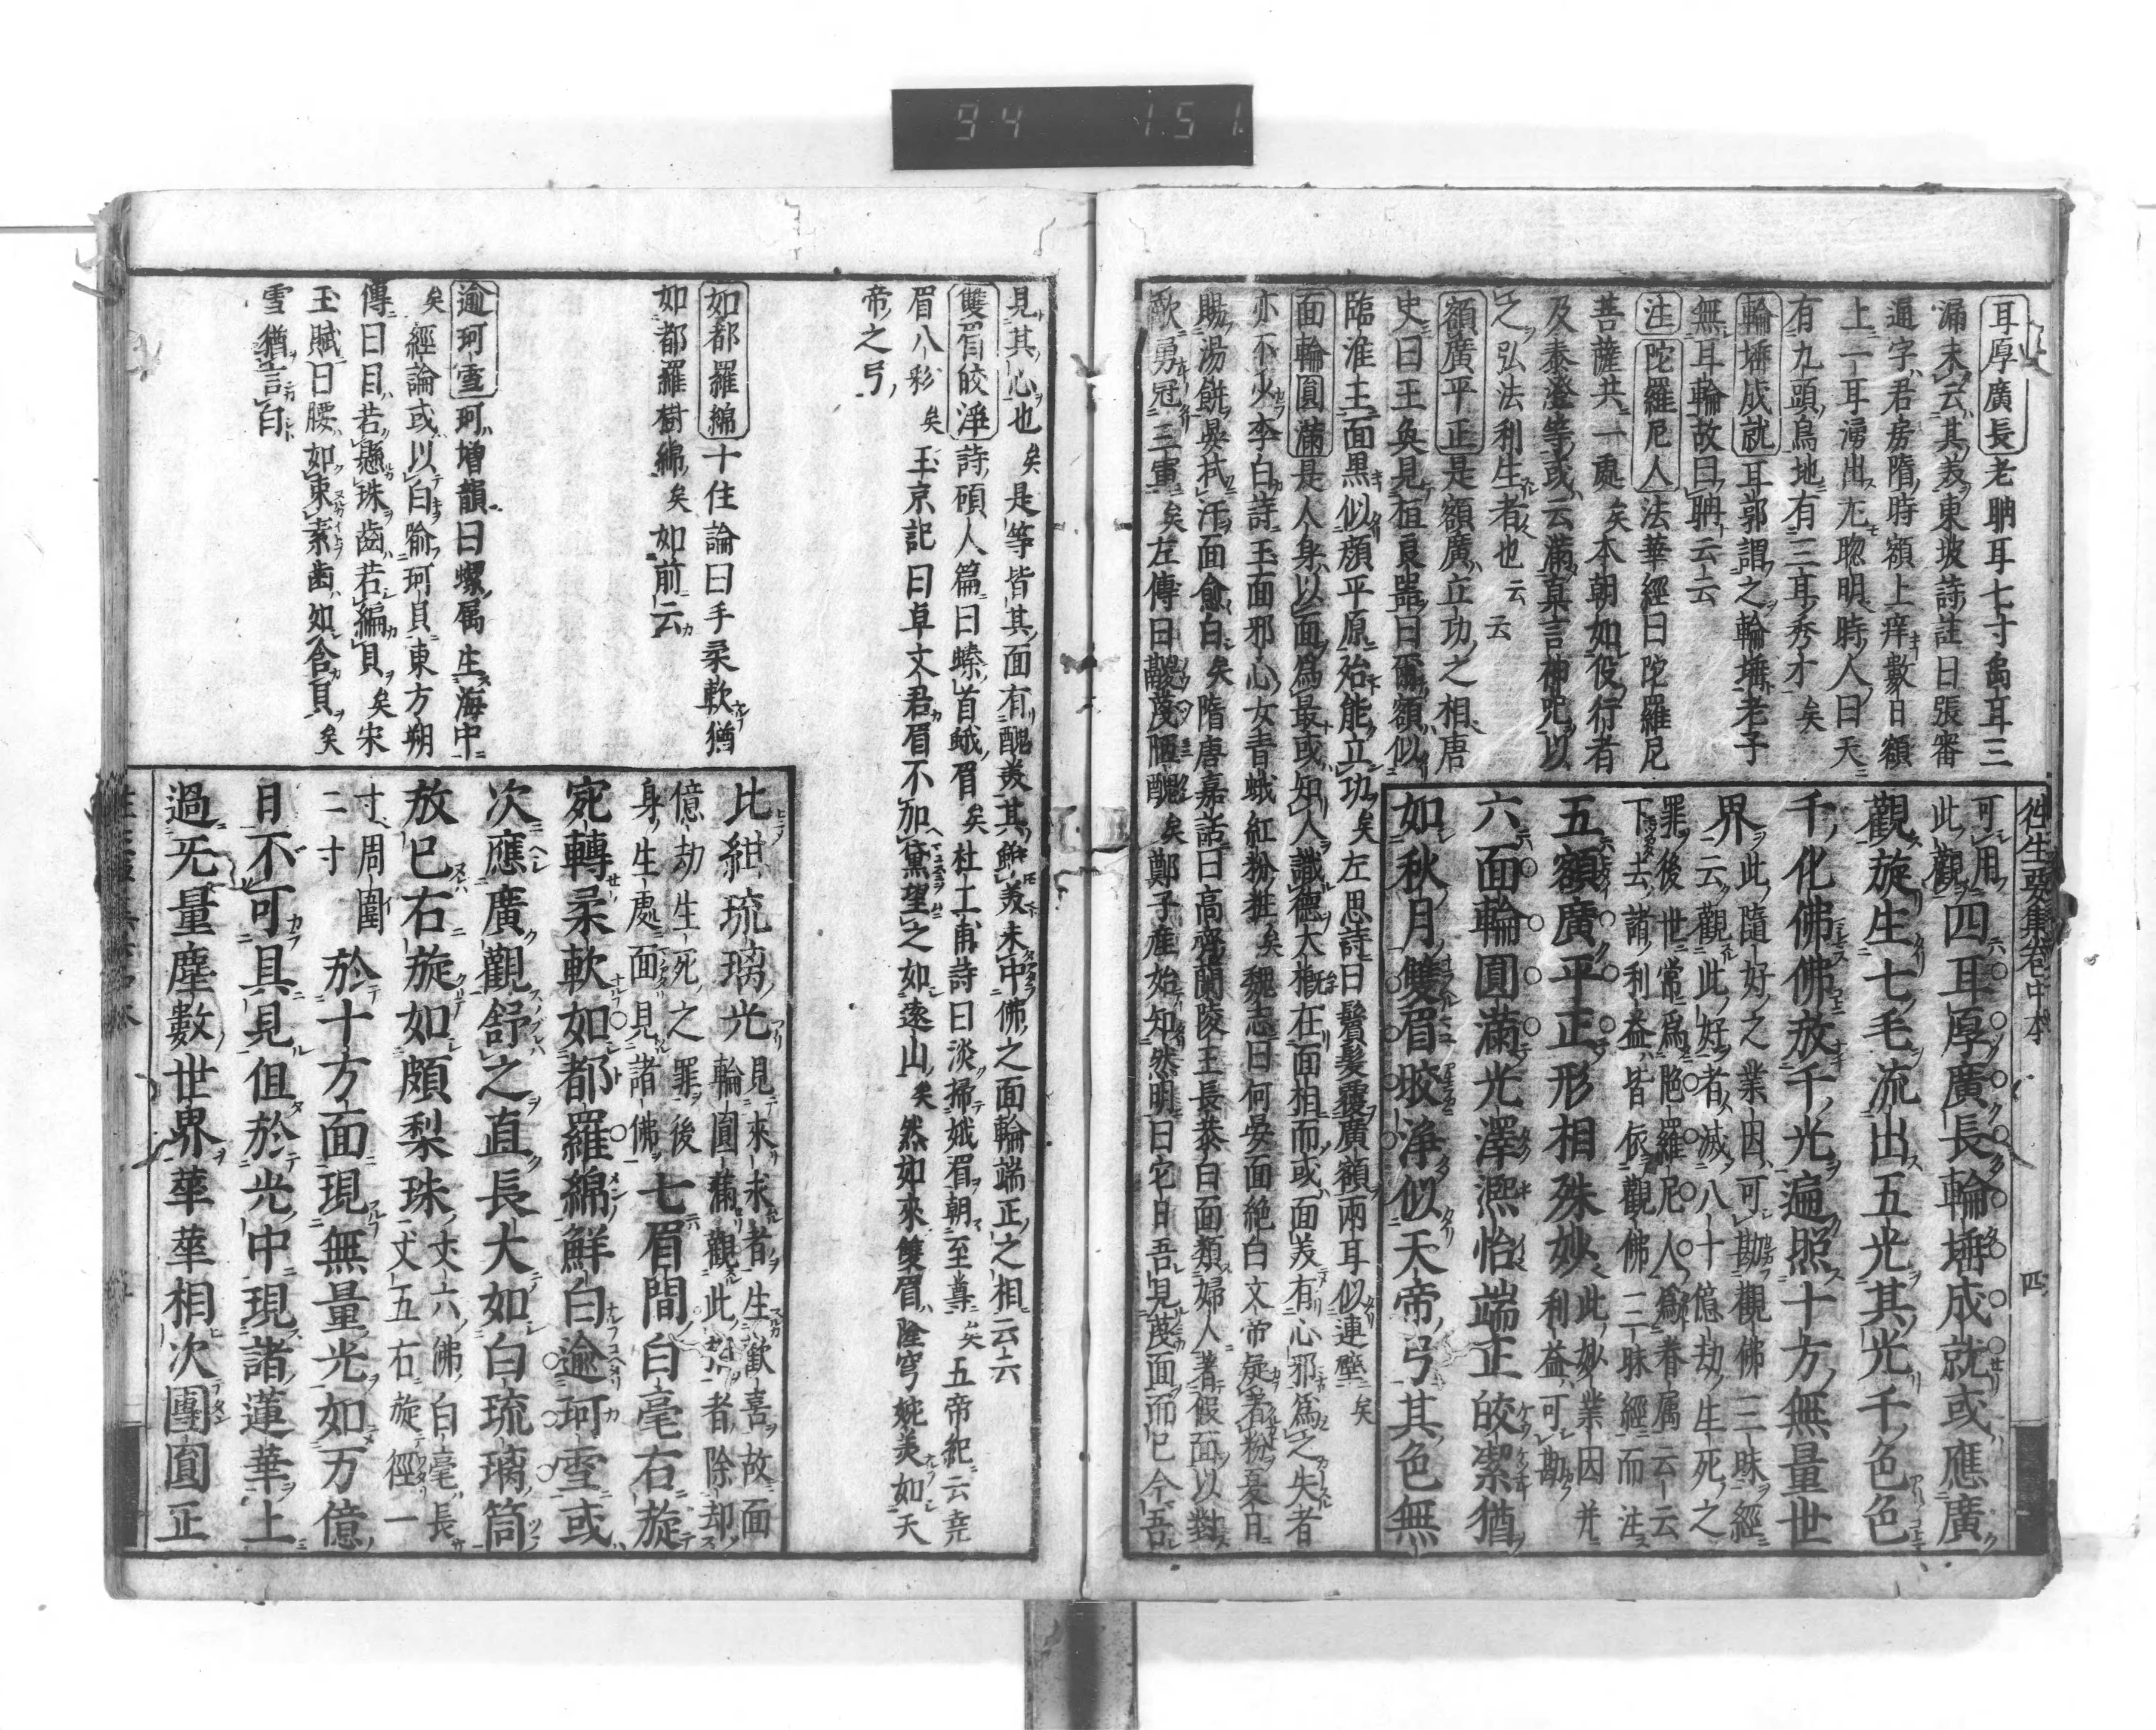 94 151
往生要集卷中本 四
耳厚廣長老聃耳七寸禹耳三
漏未云其義東坡詩註曰張審
通字君房隋時額上痒數日額
上一耳湧出尤聰明時人曰天
有九頭鳥地有三耳秀才矣
輪埵成就耳郭謂之輪埵老子
無耳輪故曰聃云云
注陀羅尼人法華經曰陀羅尼
菩薩共一處矣本朝如役行者
及泰澄等或云滿眞言神咒以
之弘法利生者也云云
額廣平正是額廣立功之相唐
史曰王奐見桓良器曰爾額似
臨淮王面黒似顔平原殆能立功矣左思詩曰鬢髮覆廣額兩耳似連璧矣
面輪圓滿是人身以面爲最或知人識德大概在面相而或面美有心邪爲之失者
亦不少李白詩玉面邪心女青蛾紅粉粧矣魏志曰何晏面絶白文帝疑著粉夏日
賜湯餅晏拭汗面愈白矣隋唐嘉話曰高齊蘭陵王長恭白面類婦人著假面以對
敵勇冠三軍矣左傳曰鬷蔑面醜矣鄭子産始知然明曰它日吾見蔑面而已今吾
可用四耳厚廣長輪埵成就或應廣
此觀
觀旋生七毛流出五光其光千色色
千化佛佛放千光遍照十方無量世
界此隨好之業因可勘觀佛三昧經
云觀此好者滅八十億劫生死之
罪後世常爲陀羅尼人爲眷屬云云
下去諸利益皆依觀佛三昧經而注
五額廣平正形相殊妙此妙業因并
利益可勘
六面輪圓滿光澤熙怡端正皎潔猶
如秋月雙眉皎淨似天帝弓其色無
見其心也矣是等皆其面有醜美其餘美未中佛之面輪端正之相云六
雙眉皎淨詩碩人篇曰螓首蛾眉矣杜工甫詩曰淡掃娥眉朝至尊矣五帝紀云堯
眉八彩矣玉京記曰卓文君眉不加黛望之如遠山矣然如來雙眉隆穹婉美如天
帝之弓
如都羅綿十住論曰手柔軟猶
如都羅樹綿矣如前云
逾珂雪珂增韻曰螺属生海中
矣經論或以白喩珂貝東方朔
傳曰目若懸珠齒若編貝矣宋
玉賦曰腰如束素齒如含貝矣
雪猶言白
比紺琉璃光見來求者生歡喜故面
輪圓滿觀此好者除却
億劫生死之罪後
身生處面見諸佛七眉間白毫右旋
宛轉柔軟如都羅綿鮮白逾珂雪或
次應廣觀舒之直長大如白琉璃筒
放已右旋如頗梨珠丈六佛白毫長
一丈五右旋徑一
寸周圍
二寸於十方面現無量光如万億
日不可具見但於光中現諸蓮華上
過无量塵數世界華華相次團圓正